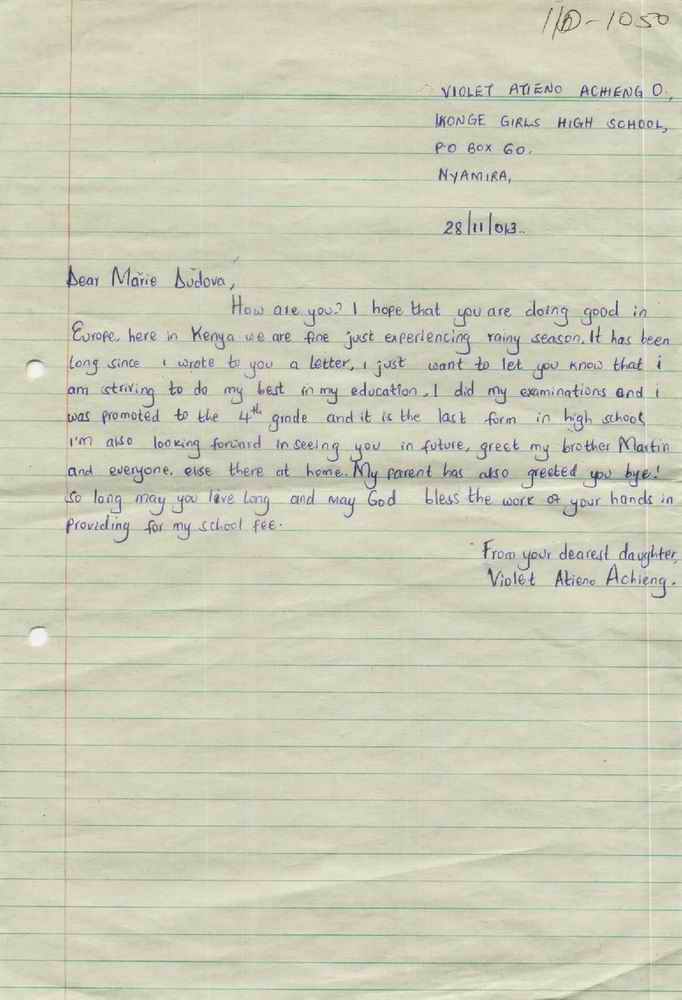 -1050
VIOLET ATIENO ACHIENG O.,
IKONGE GIRLS HIGH SCHOOL,
P.O BOX 60.
NYAMIRA,
28/11/013..
Dear Marie Dudova,
How are you? I hope that you are doing good in
Europe, here in Kenya we are fine just experiencing rainy season. It has been
long since i wrote to you a letter, i just want to let you know that i
am striving to do my best in my education, I did my examinations and i
was promoted to the 4th grade and it is the last form in high school
I'm also looking forward in seeing you in future, greet my brother Martin
and everyone. else there at home. My parent has also greeted you bye!
So long may you live long and may God bless the work of your hands in
providing for my school fee.
From your dearest daughter,
Violet Atieno Achieng.